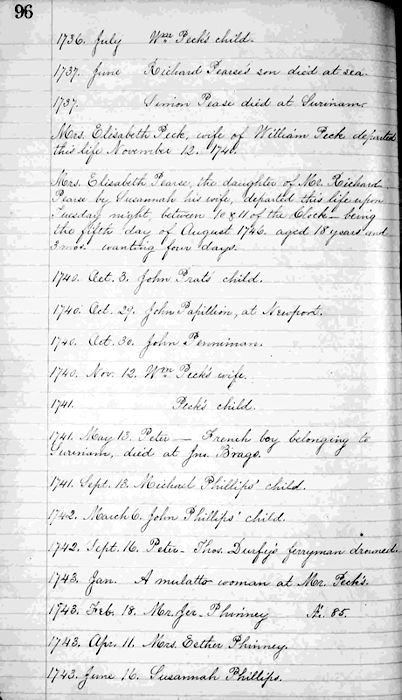 96
1736. July Wm Peck's child.
1737. June Richard Pearse's son died at sea.
1737. Simon Pease died at Surinam.
Mrs. Elisabeth Peck, wife of William Peck departed
this life November 12. 1740.
Mrs. Elisabeth Pearse, the daughter of Mr. Richard
Pearse by Susannah his wife, departed this life upon
Tuesday night, between 10 & 11 of the Clock — being
the fifth day of August 1746. aged 18 years and
3 mos. wanting four days.
1740. Oct. 3. John Prat's child.
1740. Oct. 29. John Papillion, at Newport.
1740. Oct. 30. John Penniman.
1740. Nov. 12. Wm Peck's wife.
1741. Peck's child.
1741. May 13. Peter — French boy belonging to
Surinam, died at Jno. Brags.
1741. Sept. 13. Michael Phillips' child.
1742. March 6. John Phillips' child.
1742. Sept. 16. Peter - Thos. Durfy's ferryman drowned.
1743. Jan. A mulatto woman at Mr. Peck's.
1743. Feb. 18. Mr. Jer. Phinney Æ. 85.
1743. Apr. 11. Mrs. Esther Phinney.
1743. June 16. Susannah Phillips.